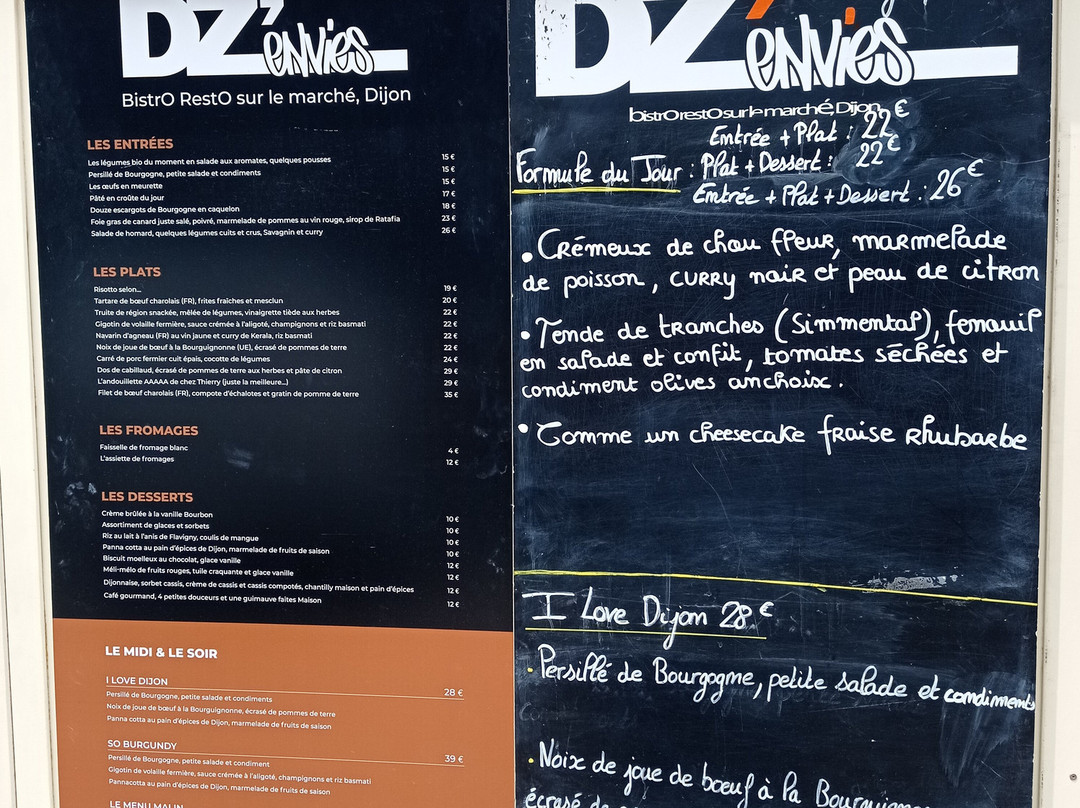 DZ'envies
BistrO RestO sur le marché, Dijon
LES ENTRÉES
Les légumes bio du moment en salade aux aromates, quelques pousses 15 €
Persillé de Bourgogne, petite salade et condiments 15 €
Les œufs en meurette 15 €
Pâté en croûte du jour 17 €
Douze escargots de Bourgogne en caquelon 18 €
Foie gras de canard juste salé, poivré, marmelade de pommes au vin rouge, sirop de Ratafia 23 €
Salade de homard, quelques légumes cuits et crus, Savagnin et curry 26 €
LES PLATS
Risotto selon... 19 €
Tartare de bœuf charolais (FR), frites fraîches et mesclun 20 €
Truite de région snackée, mêlée de légumes, vinaigrette tiède aux herbes 22 €
Gigotin de volaille fermière, sauce crémée à l'aligoté, champignons et riz basmati 22 €
Navarin d'agneau (FR) au vin jaune et curry de Kerala, riz basmati 22 €
Noix de joue de bœuf à la Bourguignonne (UE), écrasé de pommes de terre 22 €
Carré de porc fermier cuit épais, cocotte de légumes 24 €
Dos de cabillaud, écrasé de pommes de terre aux herbes et pâte de citron 29 €
L'andouillette AAAAA de chez Thierry (juste la meilleure...) 29 €
Filet de bœuf charolais (FR), compote d'échalotes et gratin de pomme de terre 35 €
LES FROMAGES
Faisselle de fromage blanc 4 €
L'assiette de fromages 12 €
LES DESSERTS
Crème brûlée à la vanille Bourbon 10 €
Assortiment de glaces et sorbets 10 €
Riz au lait à l'anis de Flavigny, coulis de mangue 10 €
Panna cotta au pain d'épices de Dijon, marmelade de fruits de saison 10 €
Biscuit moelleux au chocolat, glace vanille 12 €
Méli-mélo de fruits rouges, tuile craquante et glace vanille 12 €
Dijonnaise, sorbet cassis, crème de cassis et cassis compotés, chantilly maison et pain d'épices 12 €
Café gourmand, 4 petites douceurs et une guimauve faites Maison 12 €
LE MIDI & LE SOIR
I LOVE DIJON 28 €
Persillé de Bourgogne, petite salade et condiments
Noix de joue de bœuf à la Bourguignonne, écrasé de pommes de terre
Panna cotta au pain d'épices de Dijon, marmelade de fruits de saison
SO BURGUNDY 39 €
Persillé de Bourgogne, petite salade et condiment
Gigotin de volaille fermière, sauce crémée à l'aligoté, champignons et riz basmati
Pannacotta au pain d'épices de Dijon, marmelade de fruits de saison
LE MENU MALIN
DZ'envies
bistrO restO sur le marché, Dijon
Entrée + Plat : 22€
Formule du Jour : Plat + Dessert : 22€
Entrée + Plat + Dessert : 26€
• Crémeux de chou fleur, marmelade
de poisson, curry noir et peau de citron
• Tende de tranches (Simmental), fenouil
en salade et confit, tomates séchées et
condiment olives anchoix.
• Comme un cheesecake fraise rhubarbe
I Love Dijon 28€
• Persillé de Bourgogne, petite salade et condiments
• Noix de joue de bœuf à la
écrasé de